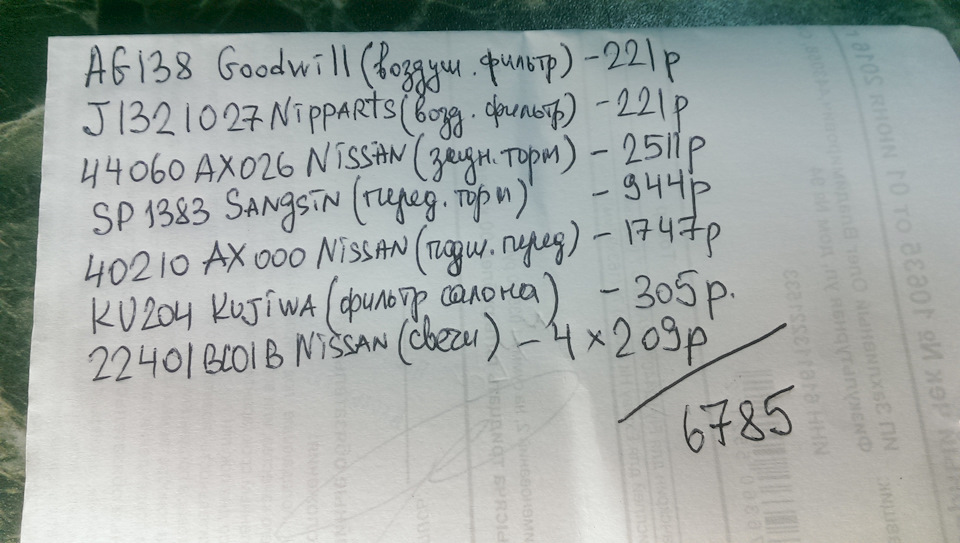 AG138 Goodwill (воздуш. фильтр) - 221р
J1321027 NipPARTS (возд. фильтр) - 221р
44060 AX026 NISSAN (задн. торм) - 2511р
SP1383 SANGSIN (перед. торм) - 944р
40210 AX000 NISSAN (подш. перед) - 1747р
KV204 KUJIWA (фильтр салона) - 305р.
22401BC01B NISSAN (свечи) - 4 × 209р
6785